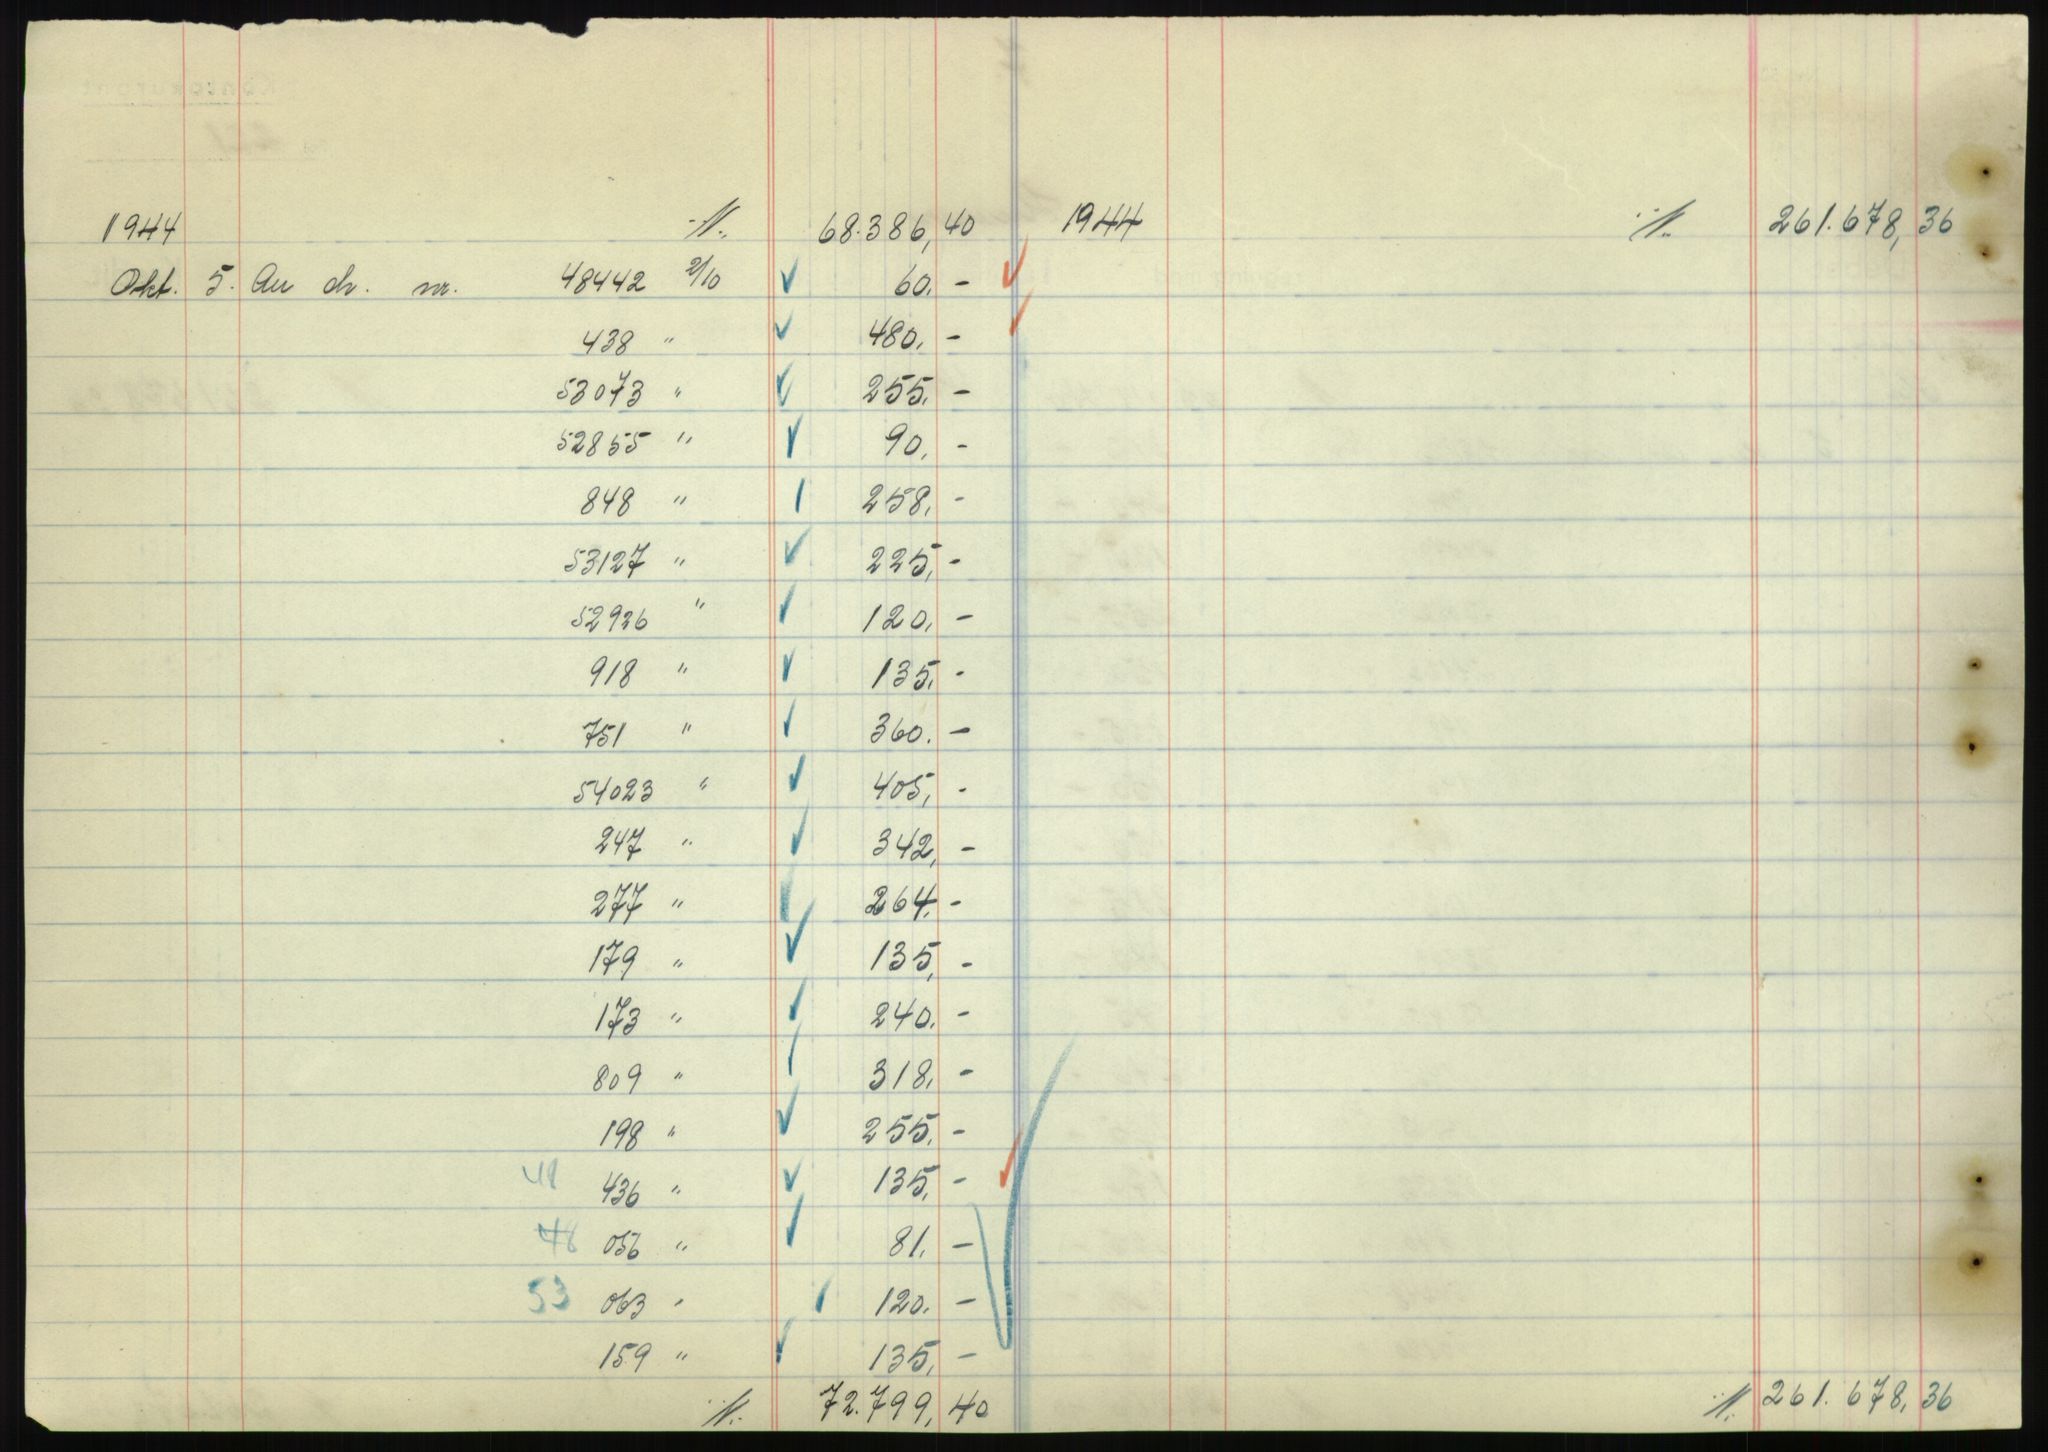 1944 ·/·. 68.386,40 1944 ·/·. 261.678,36
Okt. 5. An ch. nr. 48442 2/10 60.-
438 " 480.-
53073 " 255.-
52855 " 90.-
848 " 258.-
53127 " 225.-
52926 " 120.-
918 " 135.-
751 " 360.-
54023 " 405.-
247 " 342.-
277 " 264.-
179 " 135.-
173 " 240.-
809 " 318.-
198 " 255.-
48 436 " 135.-
48 056 " 81.-
53 063 " 120.-
159 " 135.-
·/·. 72.799,40 ·/·. 261.678,36